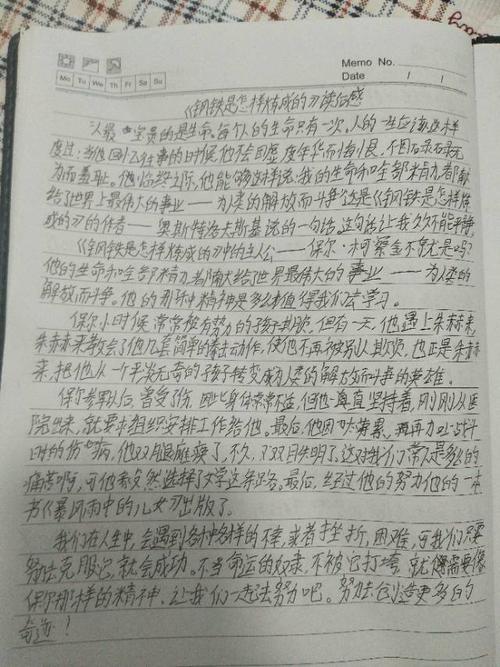 Memo No.
Mo Tu We Th Fr Sa Su
Date / /
《钢铁是怎样炼成的》读后感
人最宝贵的是生命。每个人的生命只有一次。人的一生应该这样
度过:当他回忆往事的时候,他不会因虚度年华而悔恨,不因碌碌无
为而羞耻。他临终之际,他能够这样说:我的生命和全部精力都献
给了世界上最伟大的事业——为人类的解放而斗争"这是《钢铁是怎样炼
成的》的作者——奥斯特洛夫斯基说的一句话。这句话让我久久不能平静。
《钢铁是怎样炼成的》中的主人公——保尔·柯察金不就是吗?
他的生命和全部精力都献给世界最伟大的事业——为人类的
解放而斗争。他的那种精神是多么值得我们去学习。
保尔小时候常常被有势力的孩子欺负,但有一天,他遇上朱赫来,
朱赫来教会了他几套简单的拳击动作,使他不再被别人欺负,也正是朱赫
来,把他从一个平常无奇的孩子转变成为人类的解放而斗争的英雄。
保尔参军以后,害受了伤,因此身体常常不适,但他一直坚持着,刚刚从医
院出来,就要求组织安排工作给他。最后,他因劳累,再加上战斗
时的伤病,他双腿瘫痪了,不久,双目失明了,这对我们常人是多么的
痛苦啊,可他毅然选择了文学这条路。最后,经过他的努力他的一本
书《暴风雨中的儿女》出版了。
我们在人生中,会遇到各种各样的不幸,或者挫折,困难,可我们只要
努力去克服它,就会成功。不当命运的奴隶,不被它打垮,就需要像
保尔那样的精神,让我们一起去努力吧。努力去创造更多的
奇迹!